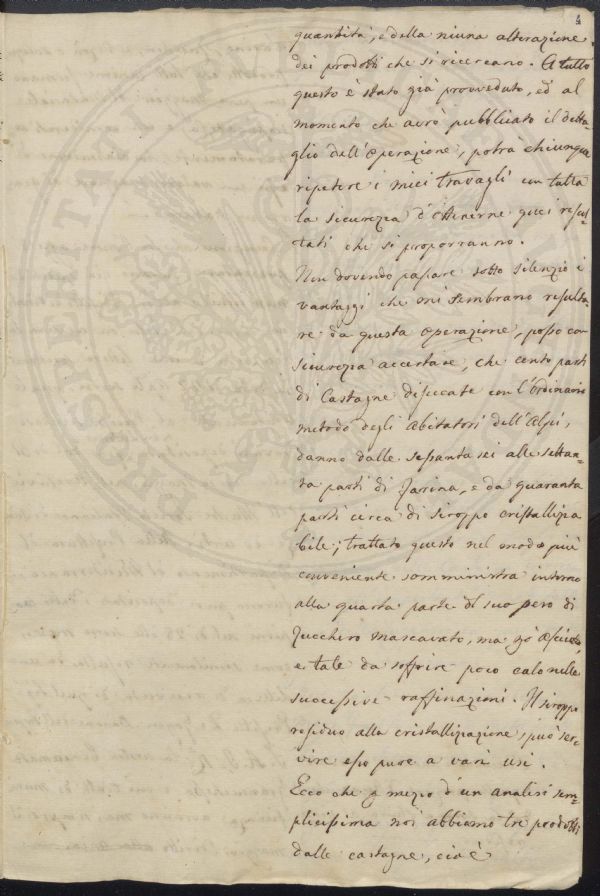 4
quantità, e della niuna alterazione
dei prodotti che si ricercano. A tutto
questo è stato già provveduto, ed al
momento che avrò pubblicato il detta-
glio dell'operazione, potrà chiunque
ripetere i miei travagli con tutta
la sicurezza d'ottenerne quei resul-
tati che si proporranno.
Non dovendo passare sotto silenzio i
vantaggi che mi sembrano resulta-
re da questa operazione, posso con
sicurezza accertare, che cento parti
di Castagne diseccate con l'ordinario
metodo degli abitatori dell'Alpi,
danno dalle sessanta sei alle settan-
ta parti di farina, e da quaranta
parti circa di siroppo cristallizza
bile; trattato questo nel modo più
conveniente somministra intorno
alla quarta parte del suo peso di
Zucchero mascavato, ma già
e tale da soffrire poco calo nelle
successive raffinazioni. Il siroppo
residuo alla cristallizzazione, può ser-
vire esso pure a varj usi.
Ecco che p mezzo d'un analisi sem-
plicissima noi abbiamo tre prodotti
dalle castagne, cioè
PROSPERITATI PUBLICAE